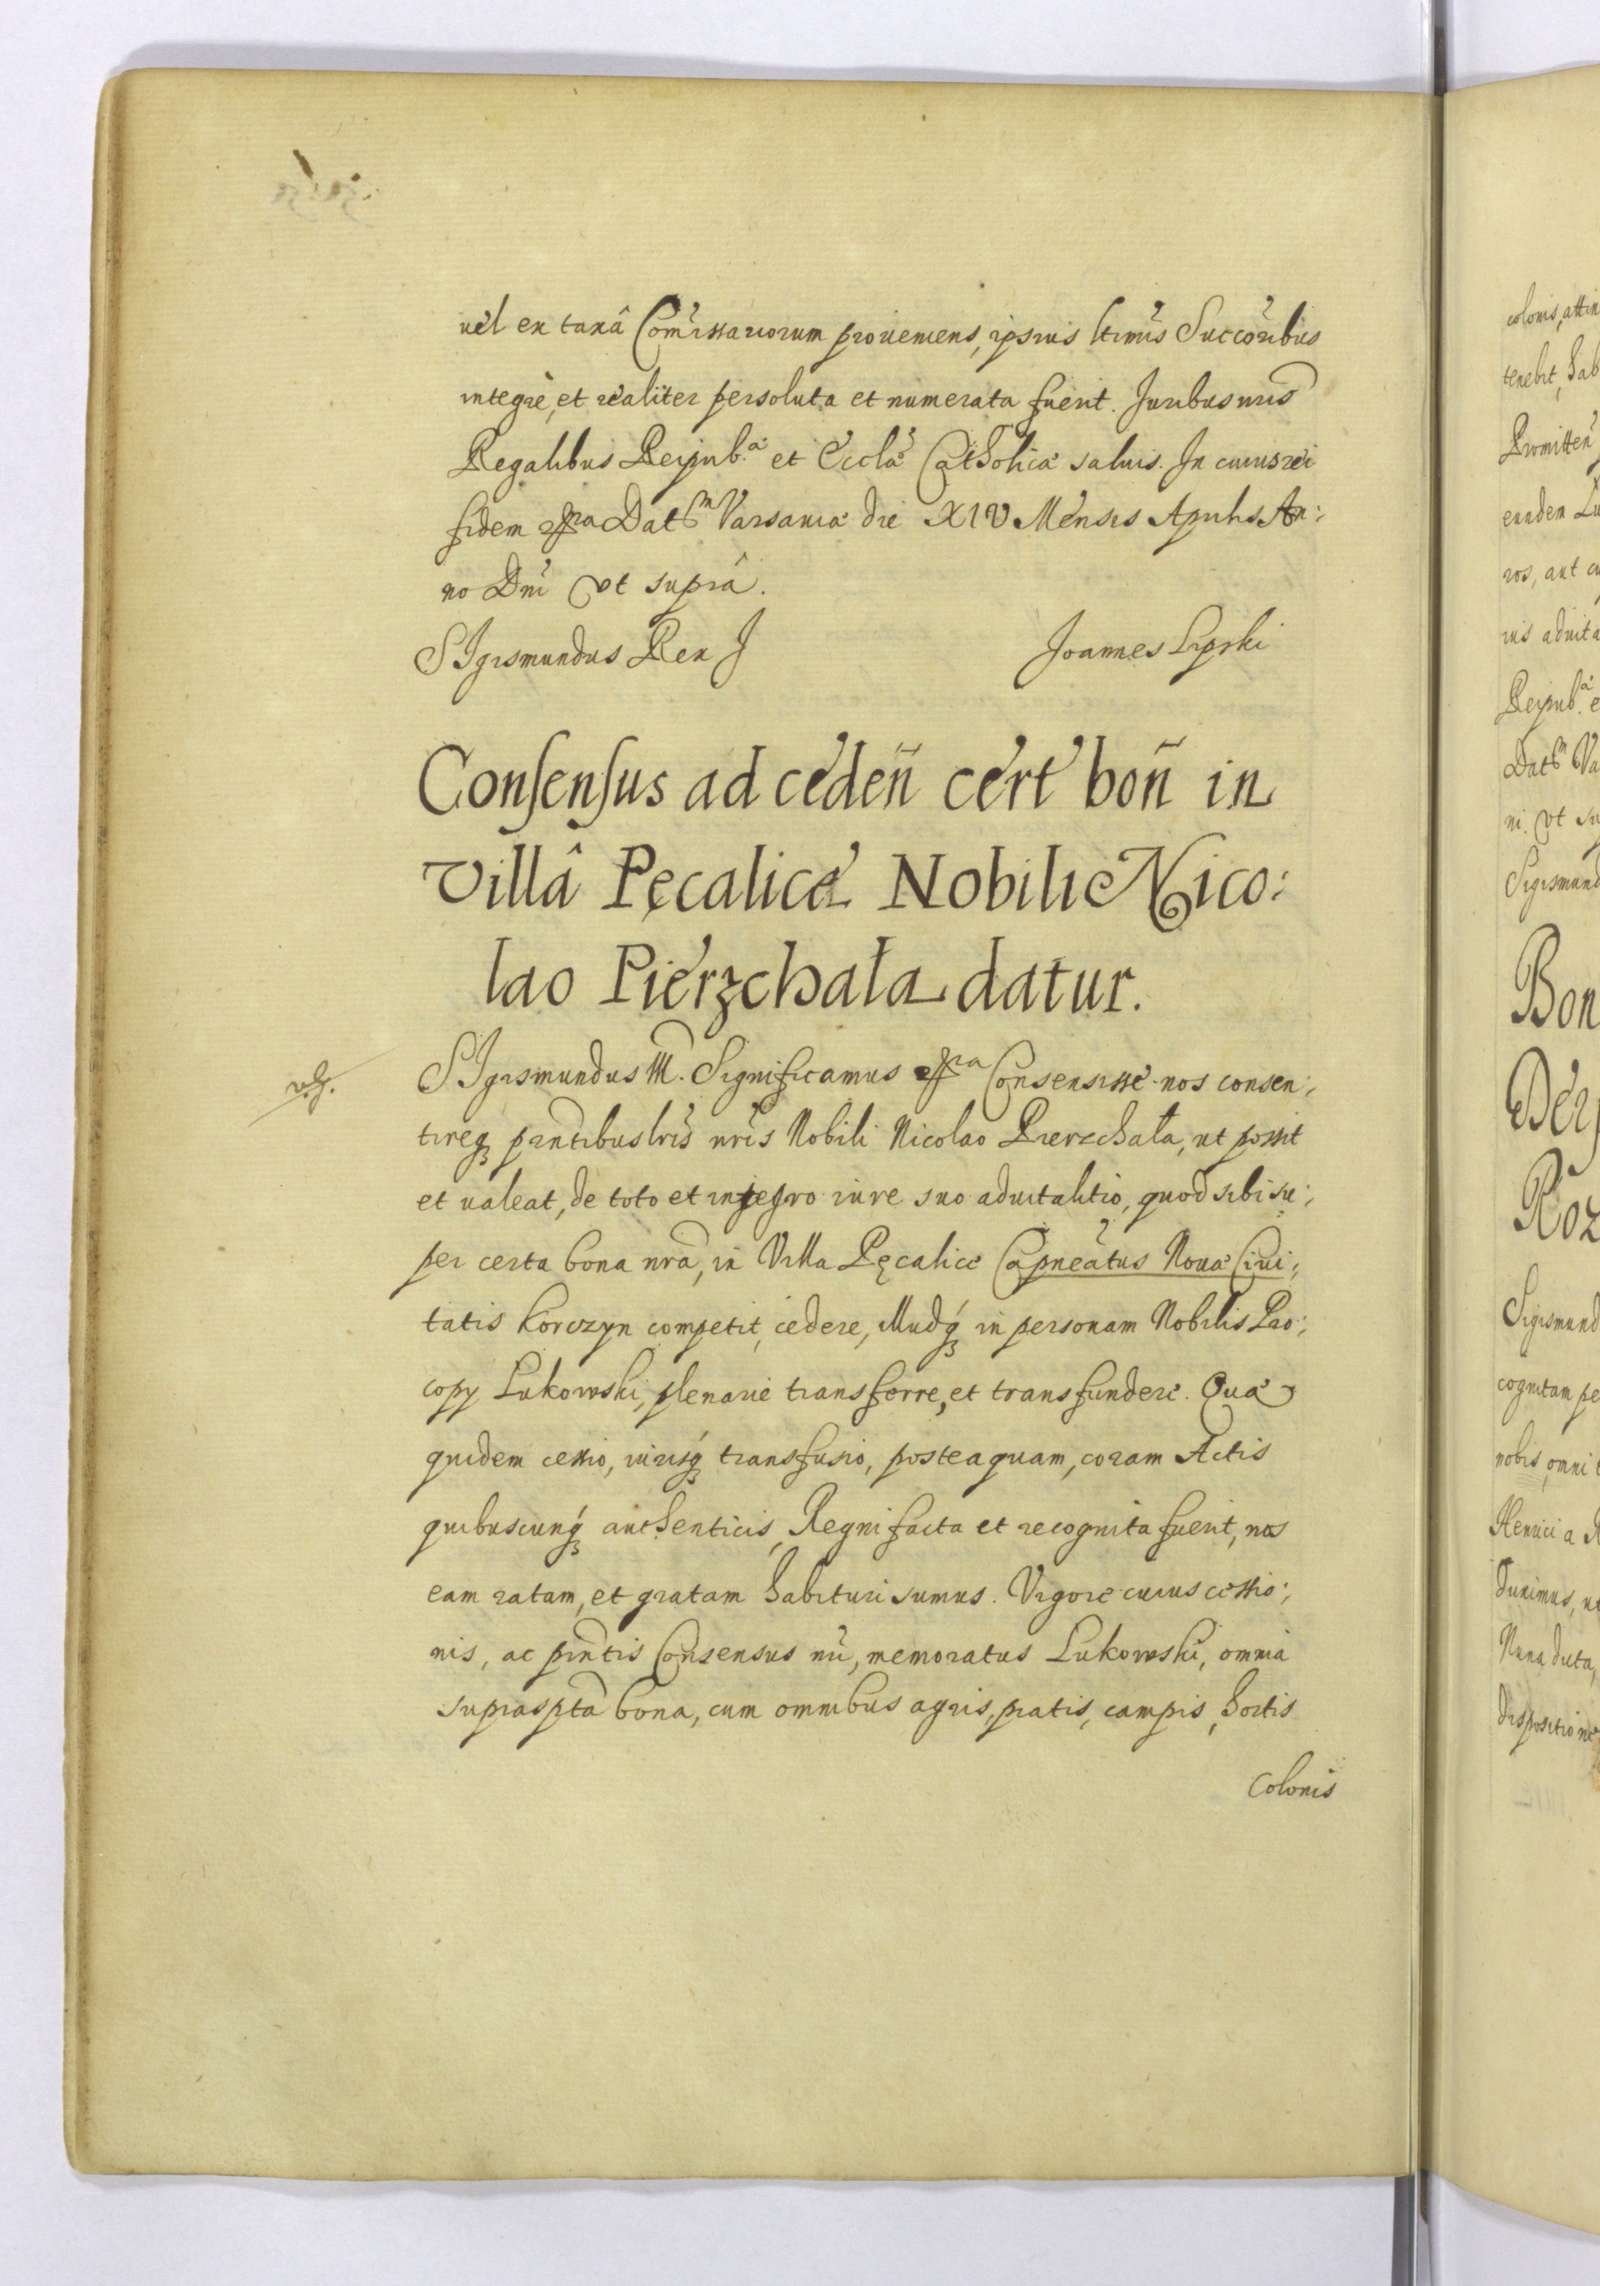 uel ex taxâ Com̃issariorum proueniens, ipsius ltimis Succoribus
integrè, et realiter persoluta et numerata fuerit. Juribus nris
Regalibus Reipub.æ et Ecclæ Catholicæ saluis. In cuius rei
fidem Dat Varsauiæ die XIV Mensis Aprilis An:
no Dni Vt suprâ.
SIgismundus Rex
Joannes Lipski
Consensus ad cedeñ cert boñ in
villâ Pęcalice Nobili Nico:
lao Pierzchała datur.
SIgismundus III. Significamus Consensisse nos consen:
tireq̃ pñtibus lris nris Nobili Nicolao Pierzchała, ut possit
et ualeat, de toto et integro iure suo aduitalitio, quod sibi su:
per certa bona nra, in Villa Pęcalice Capneatus Nouæ Ciui:
tatis Korczyn competit, cedere, Illudq́ in personam Nobilis Pro:
copy Lukowski, plenariè transferre, et transfundere. Quæ
quidem cessio, iurisq́ transfusio, posteaquam, coram Actis
quibuscunq́ authenticis, Regni facta et recognita fuerit, nos
eam ratam, et gratam habituri sumus. Vigore cuius cessio:
nis, ac pñtis Consensus nri, memoratus Lukowski, omnia
suprasptã bona, cum omnibus agris, pratis, campis, hortis
Colonis
colonis, attin
tenebit, hab
Promitten
eundem Lu
ros, aut cu
ius aduita
Reipub.æ e
Dat Va
ni Vt su
Sigismund
Bon
Der
Roz
Sigismund
cognitam pe
nobis, omni t
Henrici a R
duximus, ut
Nuna duta,
dispositione